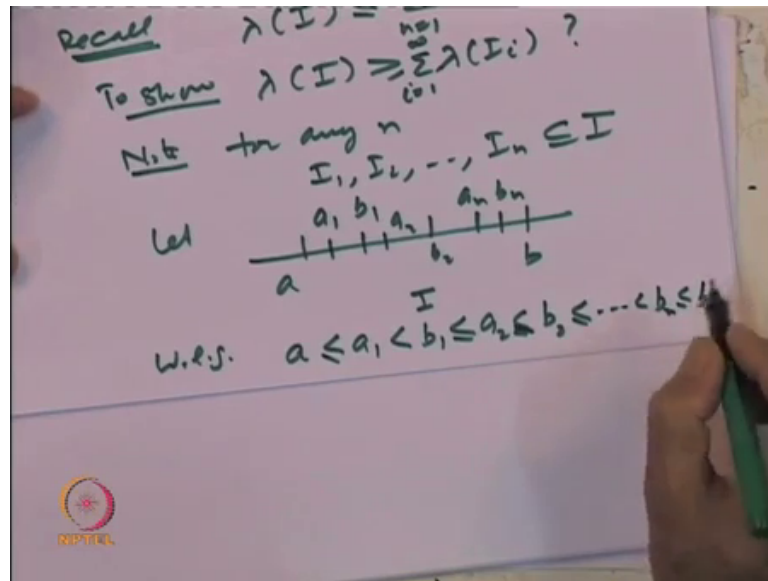 Recall λ(I) ≤
n=1
To show λ(I) ≥ ∞ Σ i=1 λ(Ii) ?
Note for any n
I1, I2, ..., In ⊆ I
Let a1 b1 a2 an bn
a b2 b
I
W.l.g. a ≤ a1 < b1 ≤ a2 ≤ b2 ≤ ... < bn ≤ b
NPTEL